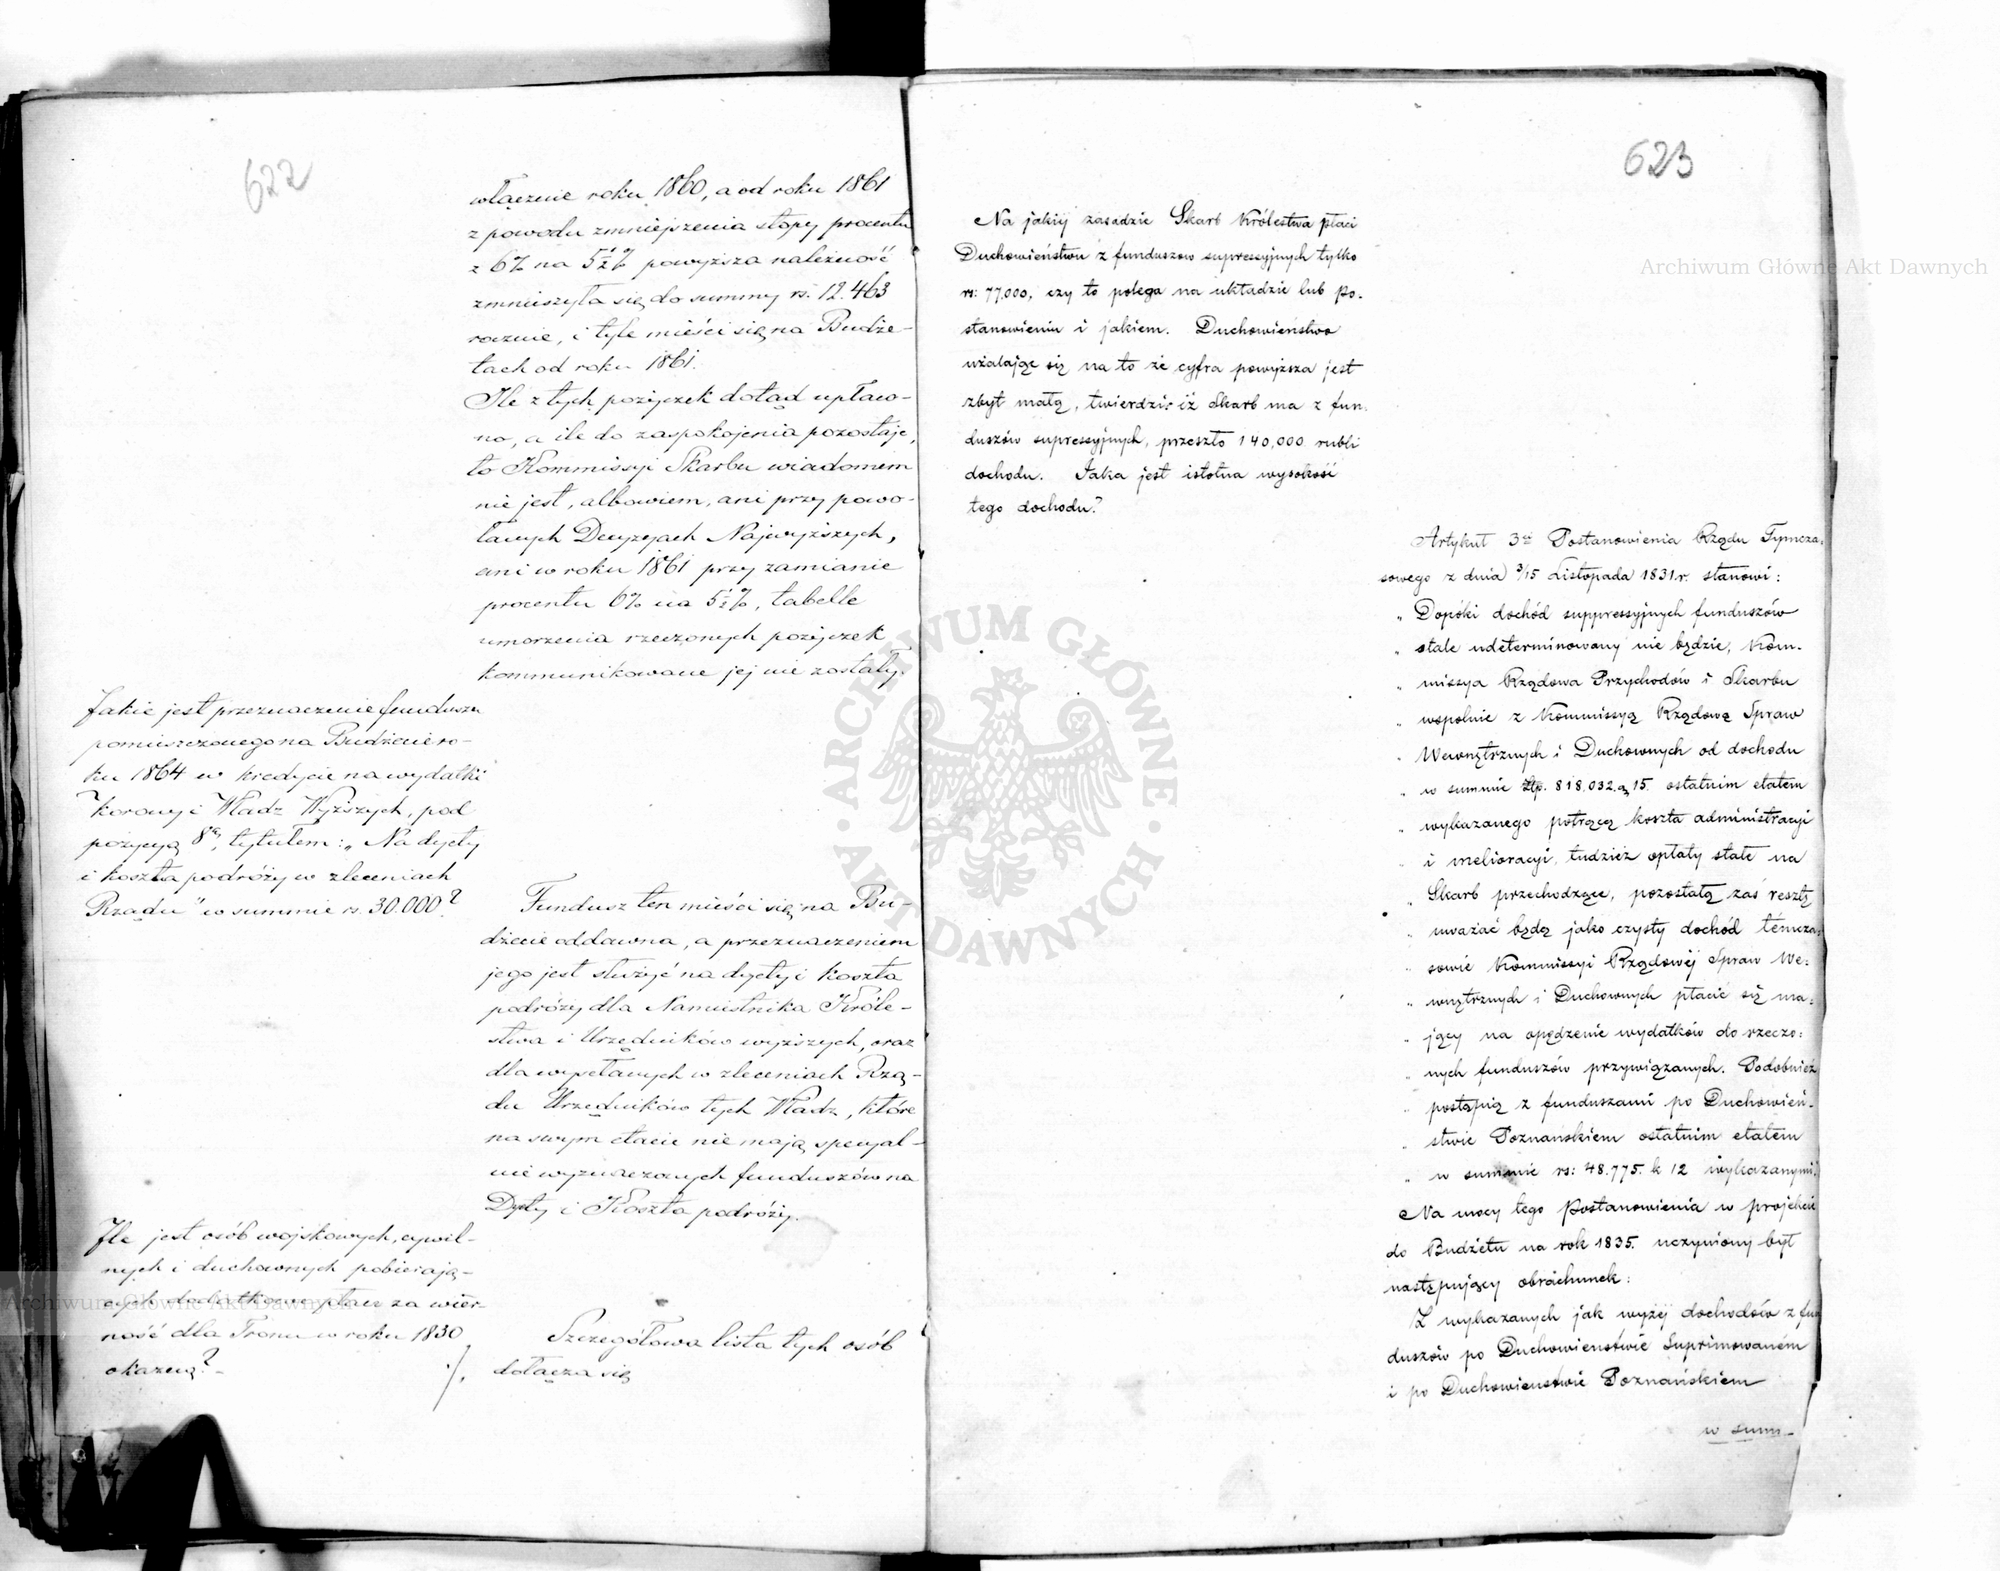 622
włącznie roku 1860, a od roku 1861
z powodu zmniejszenia stopy procentu
z 6% na 5½% powyższa należność
zmniejszyła się do summy rs. 12.463
rocznie, i tyle mieści się na Budże-
tach od roku 1861.
Ile z tych pożyczek dotąd upłaco-
no, a ile do zaspokojenia pozostaje,
to Kommissyi Skarbu wiadomem
nie jest, albowiem, ani przy powo-
łanych Decyzyach Najwyższych,
ani w roku 1861 przy zamianie
procentu 6% na 5½%, tabelle
umorzenia rzeczonych pożyczek
kommunikowane jej nie zostały.
Jakie jest przeznaczenie funduszu
pomieszczonego na Budżecie ro-
ku 1864 w kredycie na wydatki
Korony i Władz Wyższych, pod
pozycyą 8ą, tytułem: „Na dyety
i koszta podróży w zleceniach
Rządu" w summie rs. 30.000?
Fundusz ten mieści się na Bu-
dżecie oddawna, a przeznaczeniem
jego jest służyć na dyety i koszta
podróży dla Namiestnika Króle-
stwa i Urzędników wyższych, oraz
dla wysełanych w zleceniach Rzą-
du Urzędników tych Władz, które
na swym etacie nie mają specyal-
nie wyznaczonych funduszów na
Dyety i Koszta podróży.
Ile jest osób wojskowych, cywil-
nych i duchownych pobierają-
cych dodatkowe płace za wier-
ność dla Tronu w roku 1830
okazaną?
Szczegółowa lista tych osób
dołącza się
623
Na jakiéj zasadzie Skarb Królestwa płaci
Duchowieństwu z funduszow supressyjnych tylko
rs: 77.000, czy to polega na układzie lub po-
stanowieniu i jakiem. Duchowieństwo
użalając się na to że cyfra powyższa jest
zbyt małą, twierdzi: iż Skarb ma z fun-
duszów supressyjnych, przeszło 140,000 rubli
dochodu. Jaka jest istotna wysokość
tego dochodu?
Artykuł 3ci Postanowienia Rządu Tymcza-
sowego z dnia 3/15 Listopada 1831 r. stanowi:
„ Dopóki dochód suppressyjnych funduszów
„ stale udeterminowany nie będzie, Kom-
„ missya Rządowa Przychodów i Skarbu
„ wspolnie z Kommissyą Rządową Spraw
„ Wewnętrznych i Duchownych od dochodu
„ w summie złp. 818.032. g 15. ostatnim etatem
„ wykazanego potrącą koszta administracyi
„ i melioracyi, tudzież opłaty stałe na
„ Skarb przechodzące, pozostałą zaś resztę
„ uważać będą jako czysty dochód témcza-
„ sowie Kommissyi Rządowéj Spraw We-
„ wnętrznych i Duchownych płacić się ma-
„ jący na opędzenie wydatków do rzeczo-
„ nych funduszów przywiązanych. Podobnież
„ postąpią z funduszami po Duchowień-
„ stwie Poznańskiem ostatnim etatem
„ w summie rs: 48.775. k 12 wykazanymi.
Na mocy tego Postanowienia w projekcie
do Budżetu na rok 1835. uczyniony był
następujący obrachunek:
Z wykazanych jak wyżéj dochodów z fun
duszów po Duchowieństwie Suprimowaném
i po Duchowieństwie Poznańskiem
w sum-
Archiwum Główne Akt Dawnych
Archiwum Główne Akt Dawnych
ARCHIWUM GŁÓWNE · AKT DAWNYCH ·